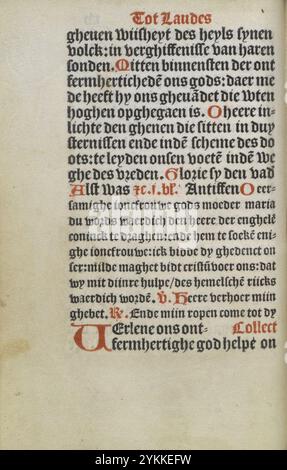 Tot Laudes
gheuen wijsheyt des heyls synen
volck: in verghiffenisse van haren
sonden. Mitten binnensten der ont
fermhertichedē ons gods: daer me
de heeft hy ons gheuādet die wten
hoghen opghegaen is. O heere in-
lichte den ghenen die sitten in duy
sternissen ende indē scheme des do
ots: te leyden onsen voetē indē we
ghe des vreden. Glorie sy den vad
Alst was ꝛc. i. vŝ. Antiffen O eer-
samighe ioncfrouwe gods moeder maria
du words waerdich den heere der enghelē
coninck te draghen: endē hem te soekē eni-
ghe ioncfrouwe: ick bidde dy ghedenct on
ser: milde maghet bidt cristū voer ons: dat
wy mit dijnre hulpe / des hemelschē rijcks
waerdich wordē. v. Heere verhoer mijn
ghebet. Re. Ende mijn ropen come tot dy
VErlene ons ont- Collect
fermhertighe god helpe on
alamy
Image ID: 2YKKEFW
www.alamy.com